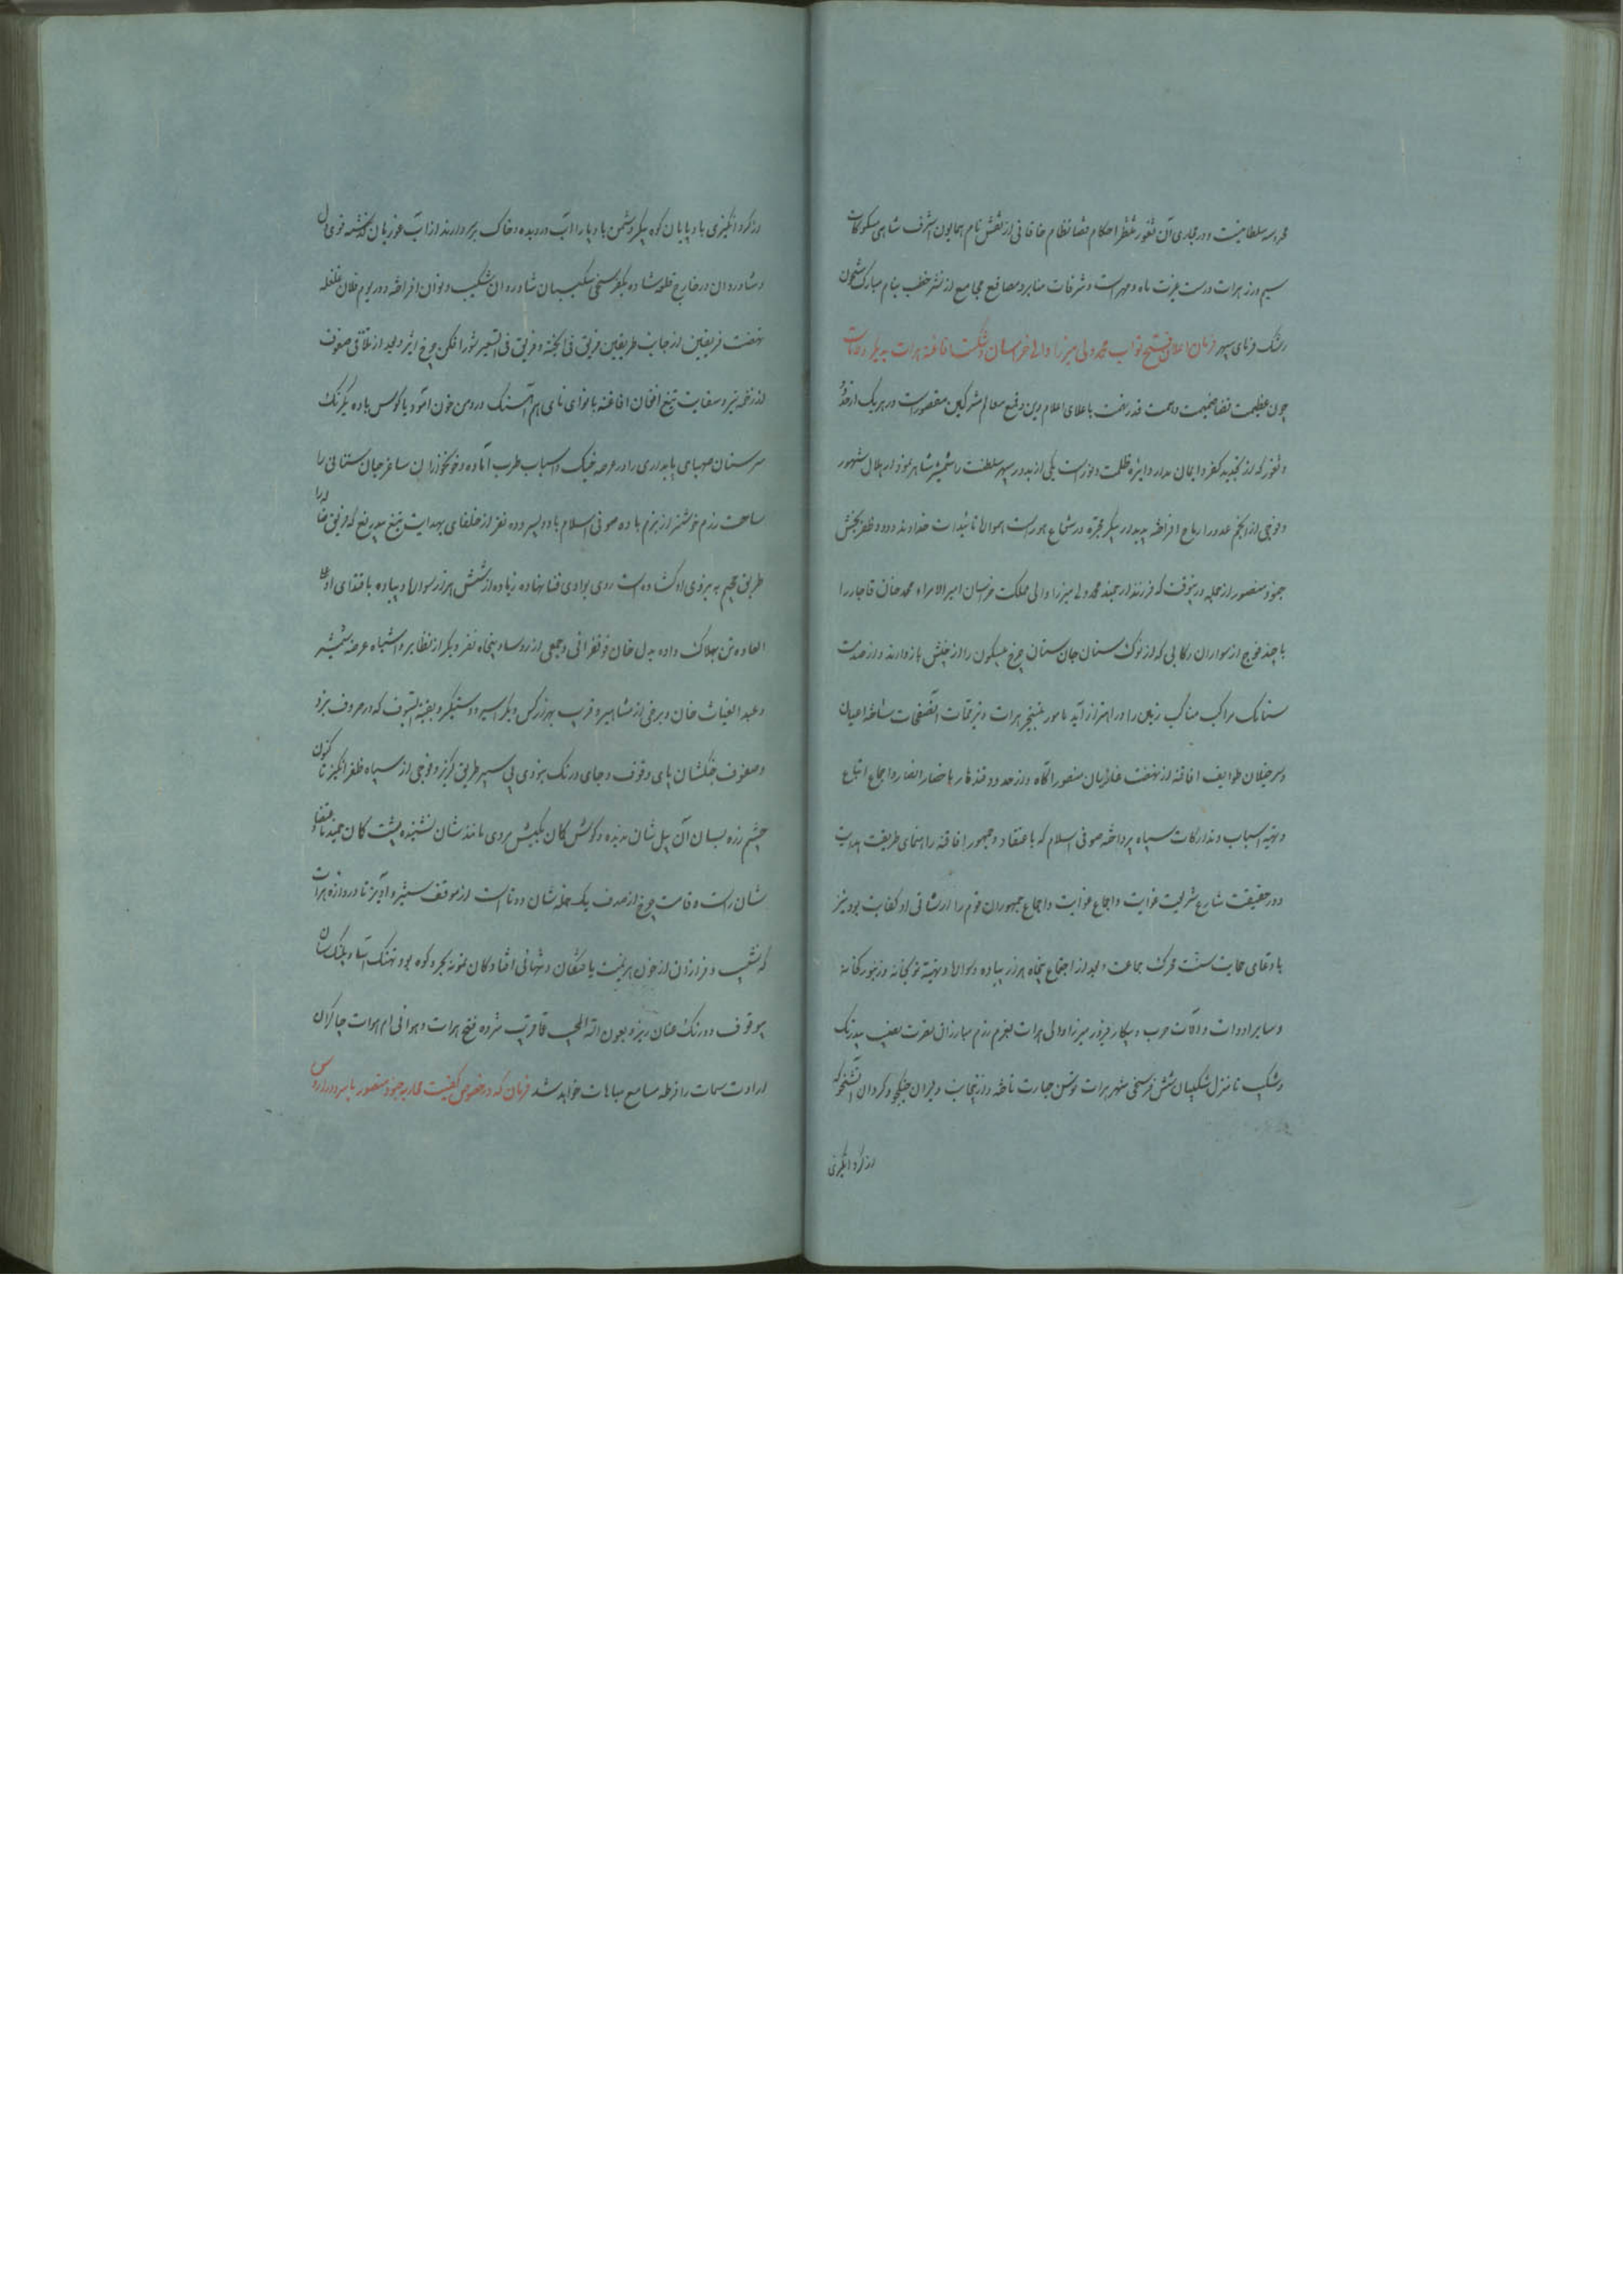 محروسه سلطانیست و در مجاری آن ثغور شطر احکام قضا نظام خاقانی از نقش نام همایون اشرف شاهی مسکوکات
سیم و زر هرات درست مغرب ماه و مهر است و شرفات منابر و مصاقع مجامع از نشر خطب بنام مبارک مشحون
رشک فرمای سپهر فرمان اعلان فتح نواب محمد ولی میرزا والی خراسان و شکست افاغنه هرات به یکی ولات
چون عظیمت قضا ضمیمت و همت قدر نعمت باعلای اعلام دین و قمع معالم مشرکین مقصور است در هر یک از حدود
و ثغور که از کفر و ایمان مدار دایره ظلمت و نور است یکی از بدور سپهر سلطنت را شمشیر شاهر نمودار هلال شهور
و فوجی از انجم عدو را رماح افراخته پدیدار پیکر مجره در شعاع هور است همواره تائیدات خداوند ودود ظفر بخش
جنود منصور از جمله درینوقت که فرزند ارجمند محمد ولی میرزا والی مملکت خراسان امیر الامراء محمد خان قاجار را
با چند فوج از سواران رکابی که از نوک سنان جان ستان چرخ نیلگون را از جنبش باز دارند و از صدمت
سنابک مراکب مناکب زمین را در اهتزاز آرند مامور بتسخیر هرات و الصفحات ساخته اعیان
و سرخیلان طوایف افاغنه از نهضت غازیان منصور آگاه و از حدود قندهار باحضار انصار و اجماع اتباع
و تهیه اسباب و تدارکات سپاه پرداخته صوفی اسلام که باعتقاد جمهور افاغنه راهنمای طریقت هدایت
و در حقیقت شارع شریعت غوایت و اجماع غوایت و اجماع جمهوران قوم را ارشاقی او کفایت بود نیز
بادعای حمایت سنت محرک جماعت و بعد از اجتماع پنجاه هزار پیاده و سواره و تهیه توپخانه و زنبورکخانه
و سایر ادوات و آلات حرب و پیکار فیروز میرزا والی هرات بعزم رزم مبارزان نصرت نصیب بیدرنگ
و شکیب تا منزل شکیبان شش فرسخی شهر هرات توسن جسارت تاخته و ازینجانب دلیران جنگجو و گردان آتشخو که
از گرد انگیزی
از گرد انگیزی باد پایان کوه پیکر دشمن باد پا را آب در دیده و خاک بر سر دارند از آب غوریان گذشته قوی دل
و شادروان در خارج قلعه شاده یکفرسخی شکیبان شادروان شکیب و توان افراخته و در یوم فلان غلغله
نهضت فریقین از جانب طریقین فریق فی الجنة و فریق فی السعیر شور افکن چرخ اثیر و بعد از تلاقی صفوف
از زخمه تیر و سفایت تیغ افغان افاغنه با نوای نای هم آهنگ و روی خون آمود با کوس باده یکرنگ
سرمستان صهبای پایداری را در عرصه جنگ اسباب طرب آماده و خونخواران ساغر جان ستانی را
ساحت رزم خوشتر از بزم باده صوفی اسلام با دو پسر و ده نفر از خلفای بهدایت تیغ بیدریغ که فریق ضاله را
طریق جحیم بر روی او گشاده است روی بوادی فنا نهاده زیاده از شش هزار سواره و پیاده باقتدای او
تن بهلاک داده بدل خان فوفلزائی و جمعی از روساء و پنجاه نفر دیگر از نظایر و اشباه عرضه شمشیر
و عبد الغیاث خان و برخی از مشاهیر و قریب بهزار کس دیگر اسیر و دستگیر و بقیة السیوف که در حروف نبرد
و صفوف جنگشان پای وقوف و جای درنگ نبود پی سپر طریق گریز و فوجی از سپاه ظفر انگیز تا کنون
چشم زره بسان آن یل شان ندیده و گوش کمان بکیش مردی مانندشان نشنیده پشت کمان
شان راست و قامت چرخ از صدف یک حمله شان دو تاست از موقف ستیز و آویز تا دروازه هرات
که نشیب و فراز آن از خون هزیمت یافتگان و تهانی افتادگان نمونه بحر و کوه بود نهنگ آسا و پلنگ سان
بیوقوف و درنگ عنان ریز و بعون الله المجیب عما قریب مژده فتح هرات و هوانی ام هرات چاکران
ارادت سمات را قرطه مسامع مباهات خواهد شد فرمان که در خصوص کیفیت محاربه جنود منصور با سردار روس